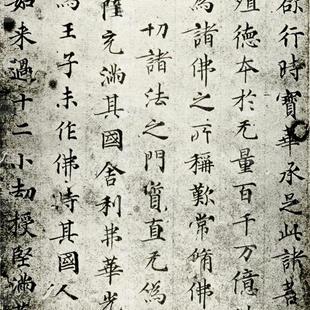 欲行時寶華承足此諸菩
殖德本於无量百千万億
為諸佛之所稱歎常脩佛
切諸法之門質直无偽
薩充滿其國舍利弗華光
為王子未作佛時其國人
如来過十二小劫授堅滿菩